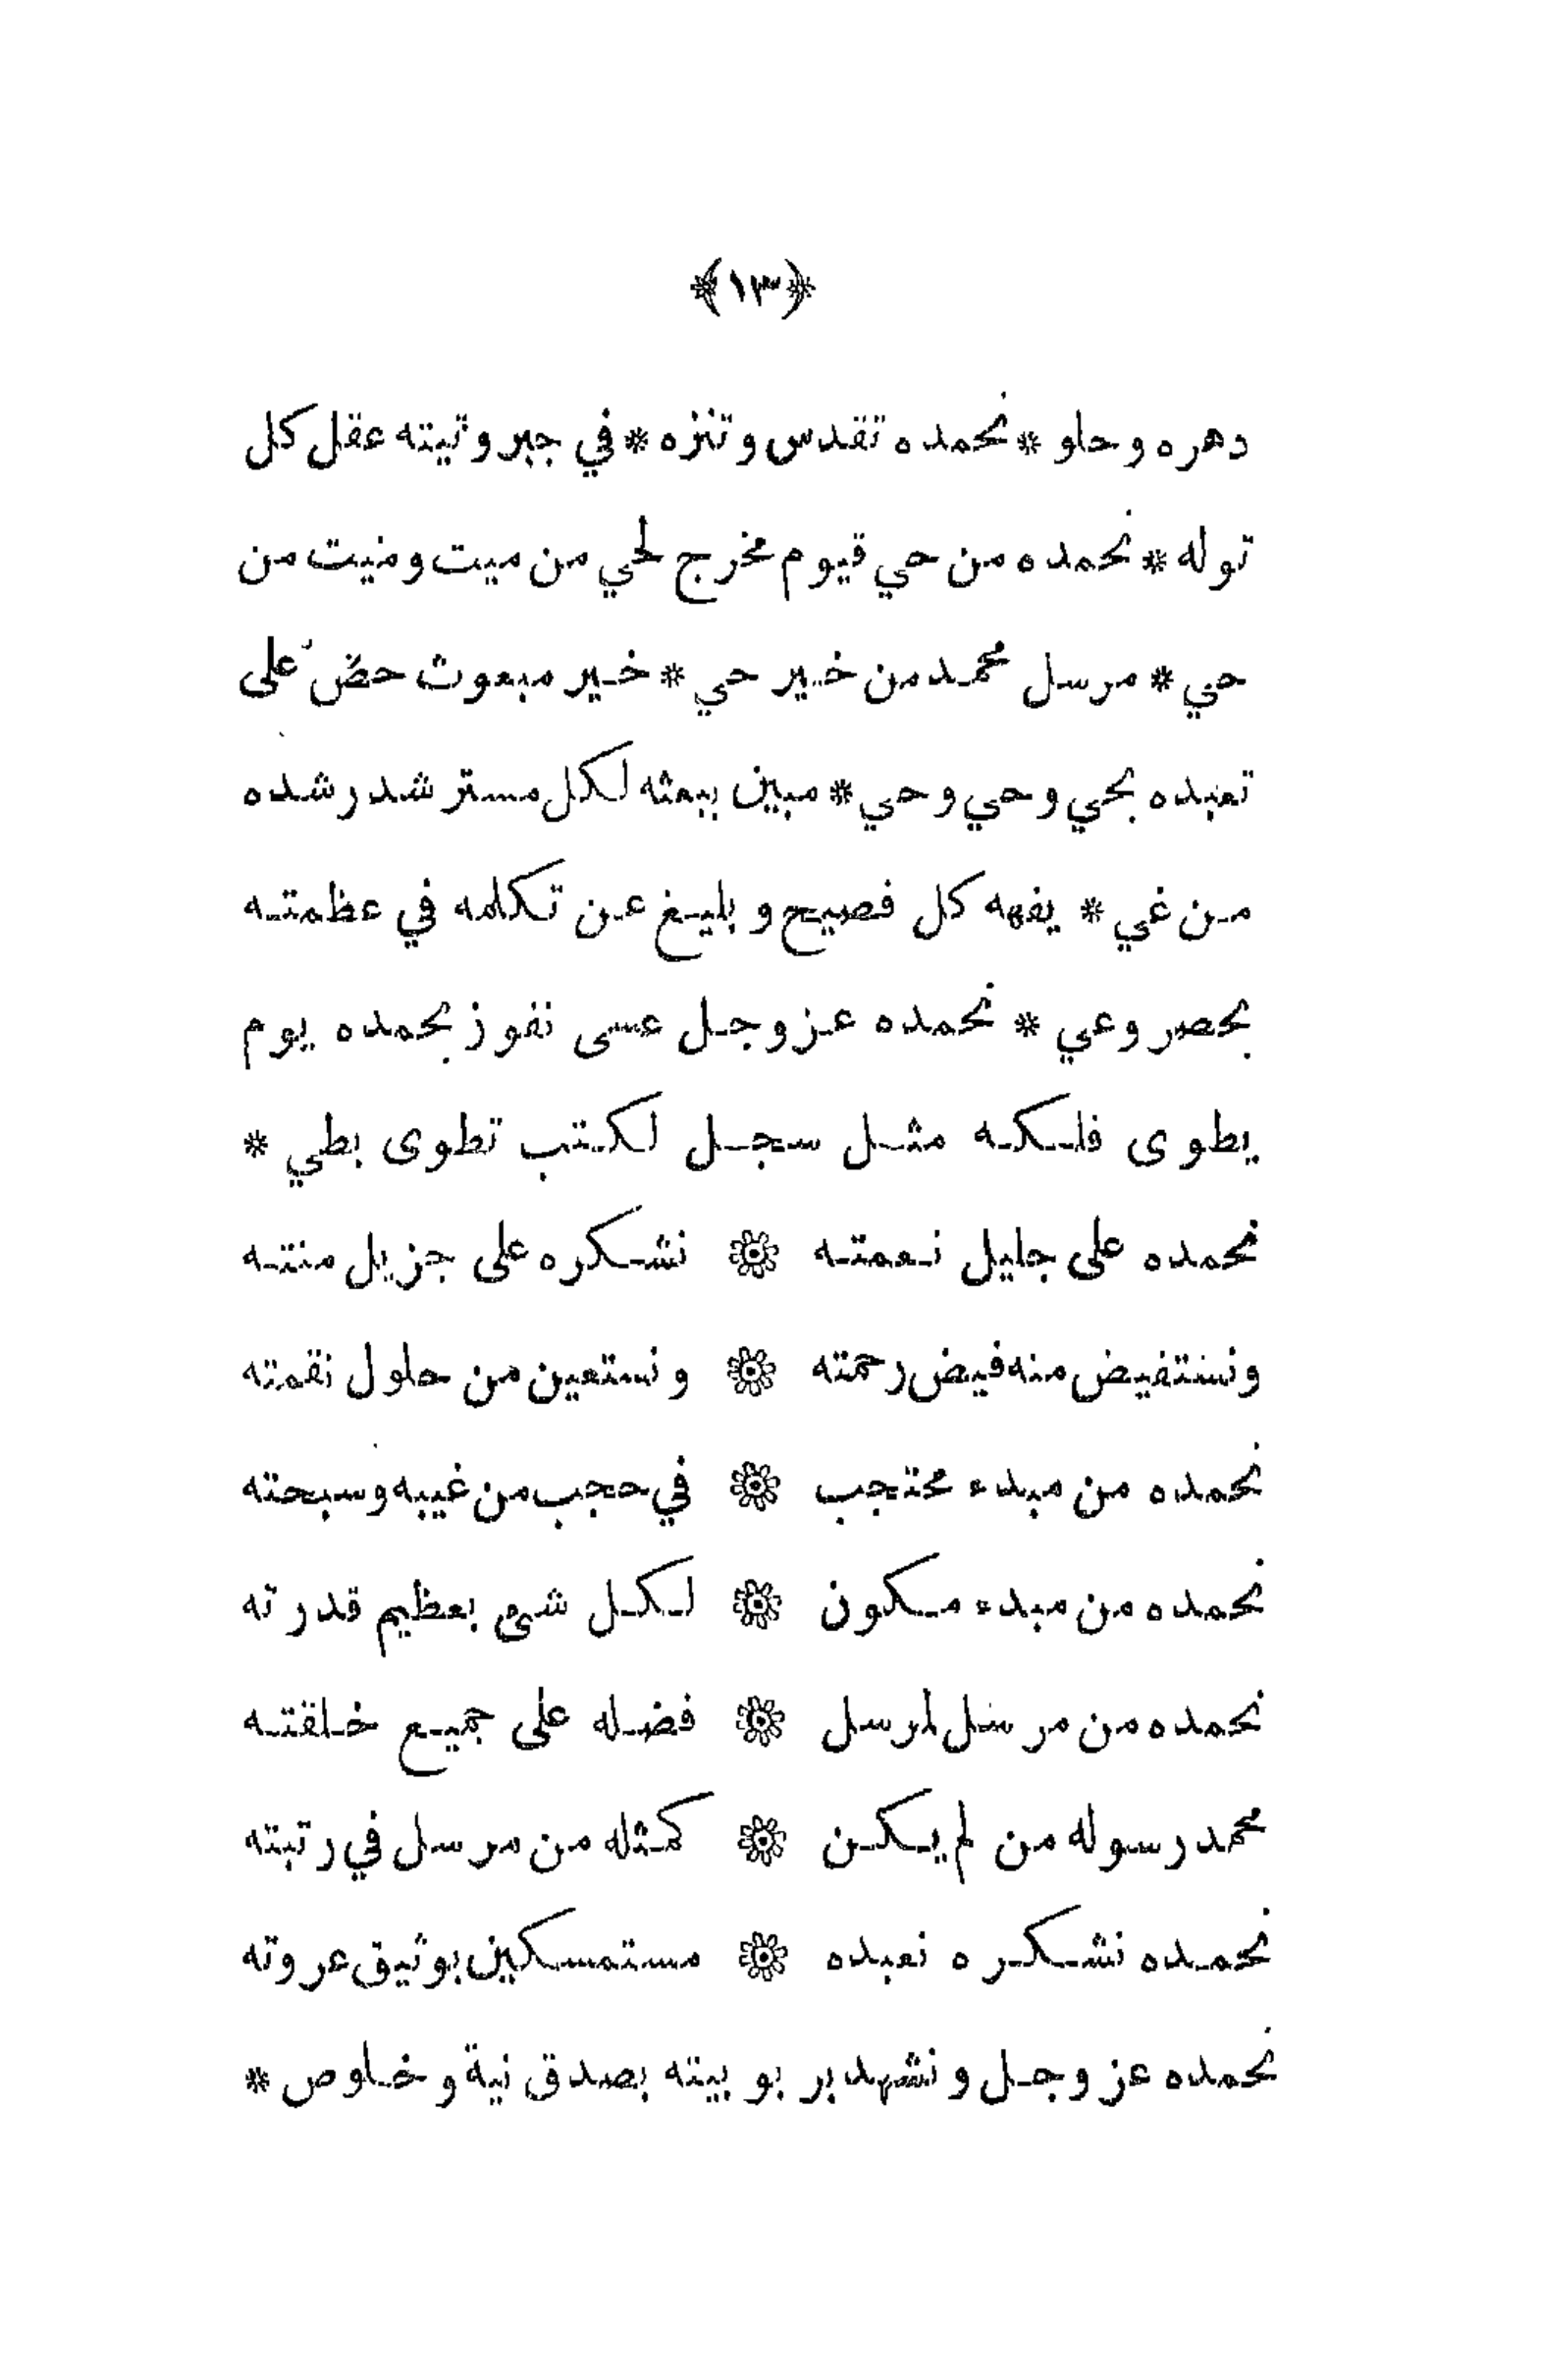 ﴿١٣﴾
دهره وحلو * نحمده تقدس وتنزه * في جبروتيته عقل كل
توله * نحمده من حي قيوم مخرج لحي من ميت ومنيت من
حي * مرسل محمد من خير حي * خير مبعوث حض على
تعبده بحي وحي وحي * مبين ببعثه لكل مسترشد رشده
من غي * يفهه كل فصيح وبليغ عن تكلمه في عظمته
بحصر وعي * نحمده عز وجل عسى نفوز بحمده يوم
يطوى فلكه مثل سجل لكتب تطوى بطي *
نحمده على جليل نعمته ۞ نشكره على جزيل منته
ونستفيض منه فيض رحمته ۞ ونستعين من حلول نقمته
نحمده من مبدء محتجب ۞ في حجب من غيبه وسبحته
نحمده من مبدء مكون ۞ لكل شئ بعظيم قدرته
نحمده من مرسل لمرسل ۞ فضله على جميع خلقته
محمد رسوله من لم يكن ۞ كمثله من مرسل في رتبته
نحمده نشكره نعبده ۞ مستمسكين بوثيق عروته
نحمده عز وجل ونشهد بربوبيته بصدق نية وخلوص *